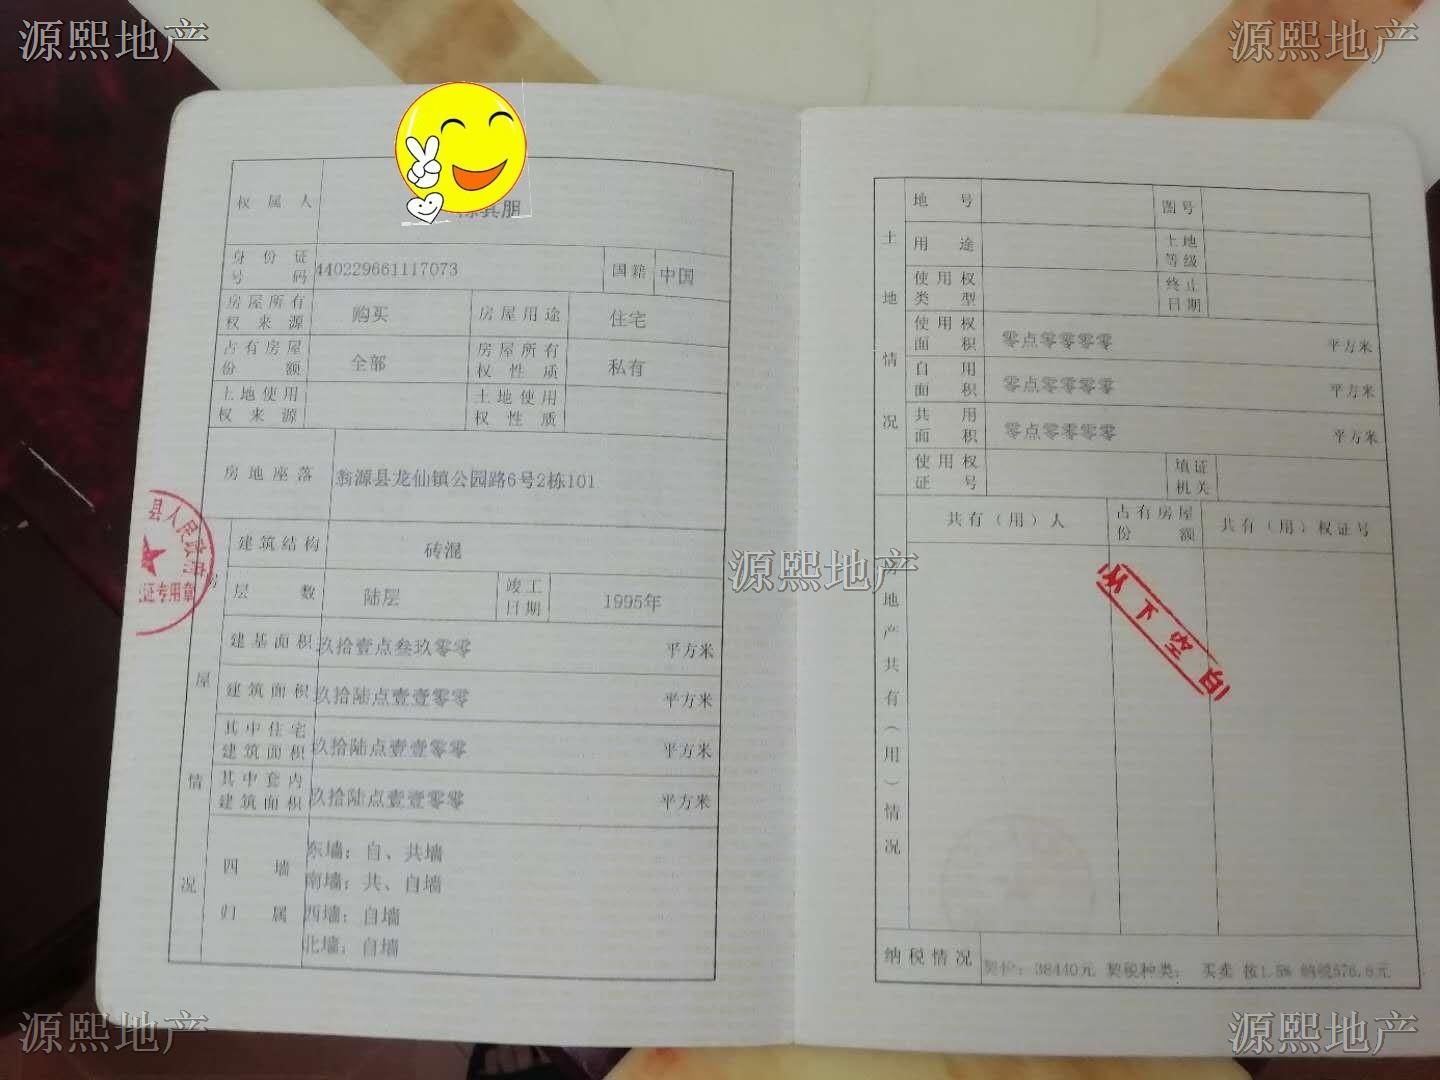 源熙地产
源熙地产
权属人 其朋
身份证号码 440229661117073 国籍 中国
房屋所有权来源 购买 房屋用途 住宅
占有房屋份额 全部 房屋所有权性质 私有
土地使用权来源 土地使用权性质
房地座落 翁源县龙仙镇公园路6号2栋101
房屋情况
建筑结构 砖混
层数 陆层 竣工日期 1995年
建基面积 玖拾壹点叁玖零零 平方米
建筑面积 玖拾陆点壹壹零零 平方米
其中住宅建筑面积 玖拾陆点壹壹零零 平方米
其中套内建筑面积 玖拾陆点壹壹零零 平方米
四墙归属
东墙：自、共墙
南墙：共、自墙
西墙：自墙
北墙：自墙
县人民政府
证专用章
土地情况
地号 图号
用途 土地等级
使用权类型 终止日期
使用权面积 零点零零零零 平方米
自用面积 零点零零零零 平方米
共用面积 零点零零零零 平方米
使用权证号 填证机关
地产共有（用）情况
共有（用）人 占有房屋份额 共有（用）权证号
以下空白
纳税情况 契价：38440元 契税种类： 买卖 按1.5% 纳税576.6元
源熙地产
源熙地产
源熙地产